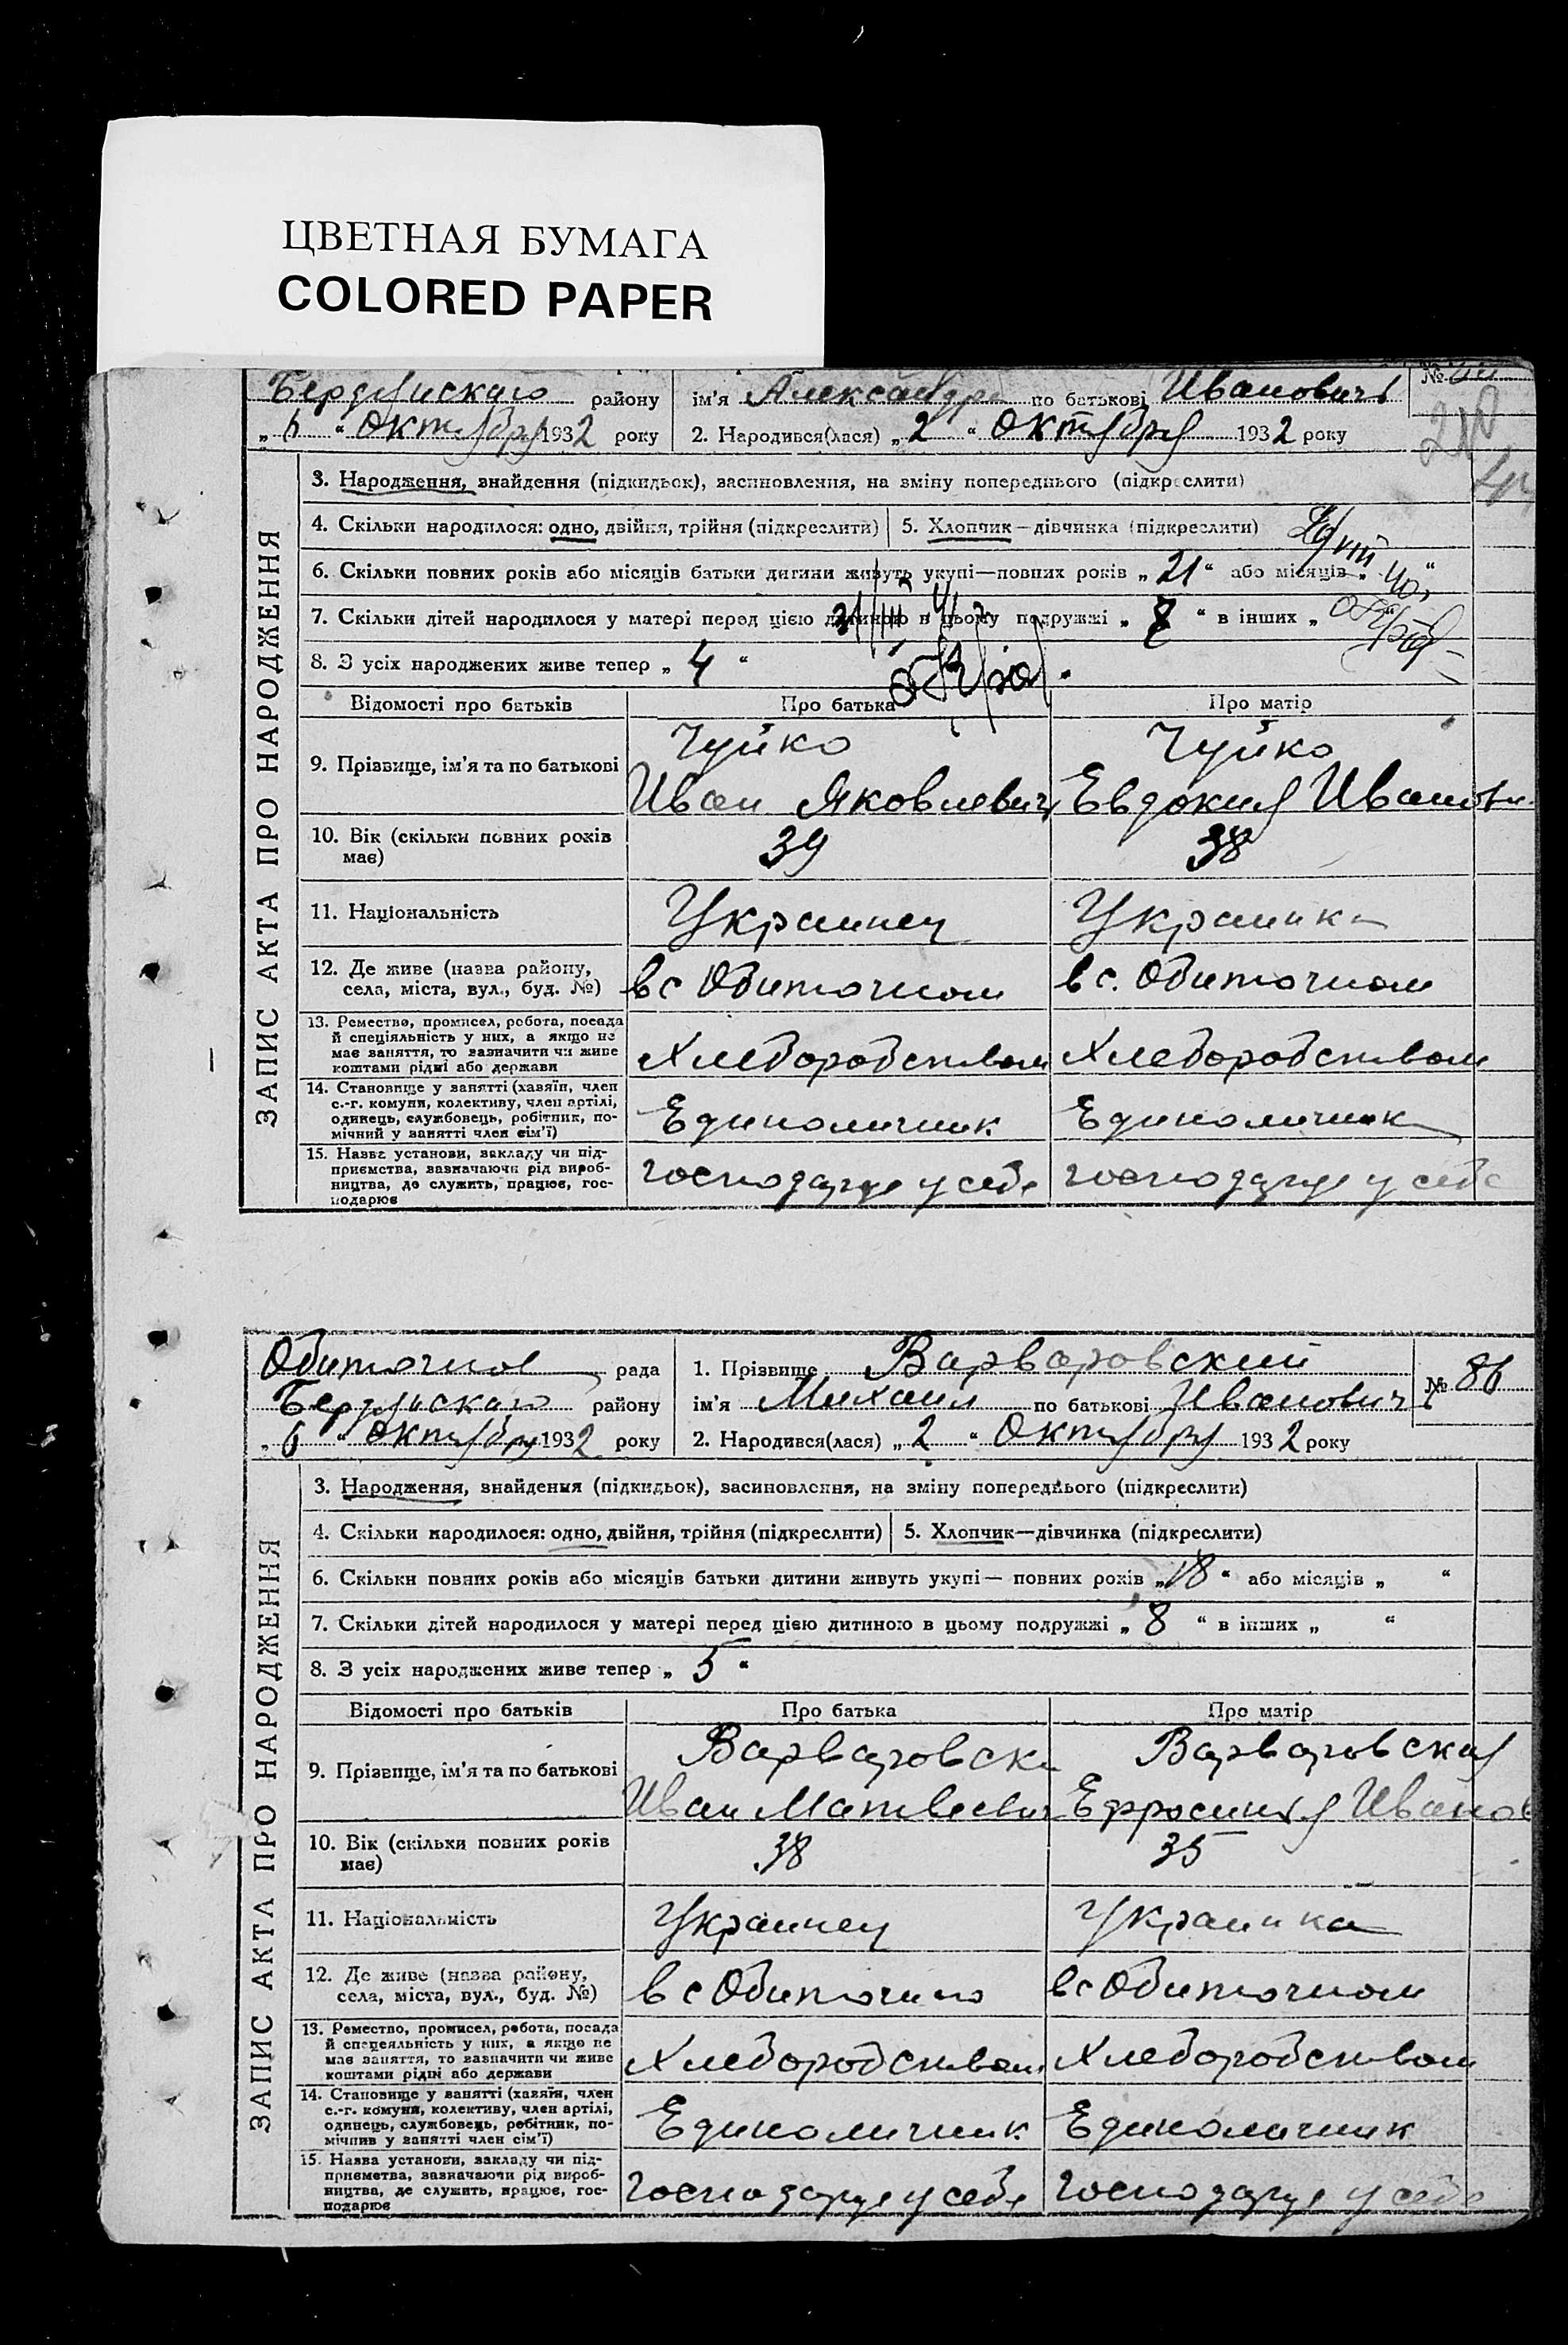 ЦВЕТНАЯ БУМАГА
COLORED PAPER
Бердянскаго району
ім'я Александр по батькові Иванович №
„6“ Октября 1932 року
2. Народився(лася) „2“ Октября 1932 року
ЗАПИС АКТА ПРО НАРОДЖЕННЯ
3. Народження, знайдення (підкидьок), засиновлення, на зміну попереднього (підкреслити)
4. Скільки народилося: одно, двійня, трійня (підкреслити) 5. Хлопчик—дівчинка (підкреслити)
6. Скільки повних років або місяців батьки дитини живуть укупі—повних років „21“ або місяців „ “
7. Скільки дітей народилося у матері перед цією дитиною в цьому подружжі „ “ в інших „
8. З усіх народжених живе тепер „4“
Відомості про батьків Про батька Про матір
9. Прізвище, ім'я та по батькові
Чуйко Чуйко
Иван Яковлевич Евдокия Иванов
10. Вік (скільки повних років має) 39 38
11. Національність Украинец Украинка
12. Де живе (назва району, села, міста, вул., буд. №) в с Обиточном в с. Обиточном
13. Ремество, промисел, робота, посада й спеціяльність у них, а якщо не має заняття, то зазначити чи живе коштами рідні або держави Хлеборобством Хлеборобством
14. Становище у занятті (хазяїн, член с.-г. комуни, колективу, член артілі, одинець, службовець, робітник, помічний у занятті член сім'ї) Единоличник Единоличник
15. Назва установи, закладу чи підприємства, зазначаючи рід виробництва, де служить, працює, господарює господарує у себе господарує у себе
Обиточное рада
1. Прізвище Варваровский № 86
Бердянскаго району
ім'я Михаил по батькові Иванович
„6“ Октября 1932 року
2. Народився(лася) „2“ Октября 1932 року
ЗАПИС АКТА ПРО НАРОДЖЕННЯ
3. Народження, знайдення (підкидьок), засиновлення, на зміну попереднього (підкреслити)
4. Скільки народилося: одно, двійня, трійня (підкреслити) 5. Хлопчик—дівчинка (підкреслити)
6. Скільки повних років або місяців батьки дитини живуть укупі— повних років „18“ або місяців „ “
7. Скільки дітей народилося у матері перед цією дитиною в цьому подружжі „8“ в інших „ “
8. З усіх народжених живе тепер „5“
Відомості про батьків Про батька Про матір
9. Прізвище, ім'я та по батькові
Варваровски Варваровская
Иван Матвеевич Ефросиния Иванов
10. Вік (скільки повних років має) 38 35
11. Національність Украинец Украинка
12. Де живе (назва району, села, міста, вул., буд. №) в с Обиточно в с Обиточном
13. Ремество, промисел, робота, посада й спеціяльність у них, а якщо не має заняття, то зазначити чи живе коштами рідні або держави Хлеборобством Хлеборобством
14. Становище у занятті (хазяїн, член с.-г. комуни, колективу, член артілі, одинець, службовець, робітник, помічник у занятті член сім'ї) Единоличник Единоличник
15. Назва установи, закладу чи підприємства, зазначаючи рід виробництва, де служить, працює, господарює господарує у себе господарує у себе